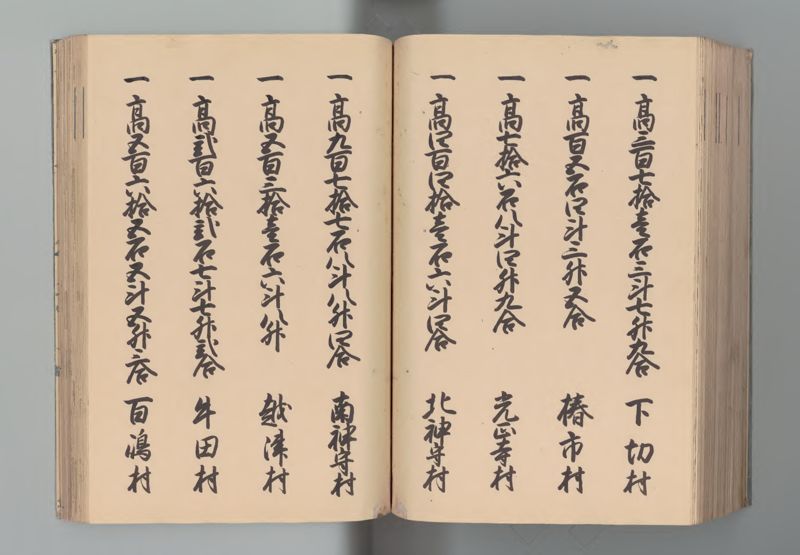 一高三百七拾壱石三斗七升九合 下切村
一高百五石四斗二升五合 椿市村
一高七拾六石八斗四升九合 光正寺村
一高四百四拾壱石六斗四合 北神守村
一高九百七拾七石八斗八升四合 南神守村
一高五百三拾壱石六斗八升 越津村
一高弐百六拾弐石七斗七升弐合 牛田村
一高五百六拾五石五斗五升六合 百嶋村